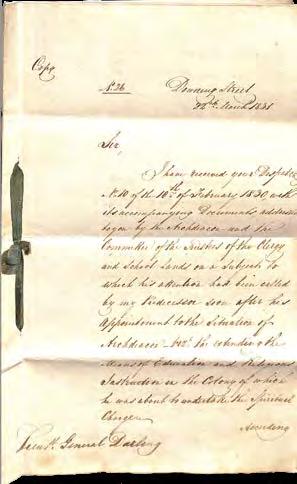 Copy
No. 26
Downing Street
March 1831
Sir,
I have received your Despatch
No. 10 of the 10th of February 1830 with
its accompanying Documents addressed
to you by the Archdeacon and the
Committee of the Trustees of the Clergy
and School Lands on a Subject to
which his attention had been called
by my Predecessor soon after his
Appointment to the Situation of
Archdeacon vizt. the extending the
Means of Education and Religious
Instruction in the Colony of which
he was about to undertake the Spiritual
Charge.
According
Lieutt. General Darling